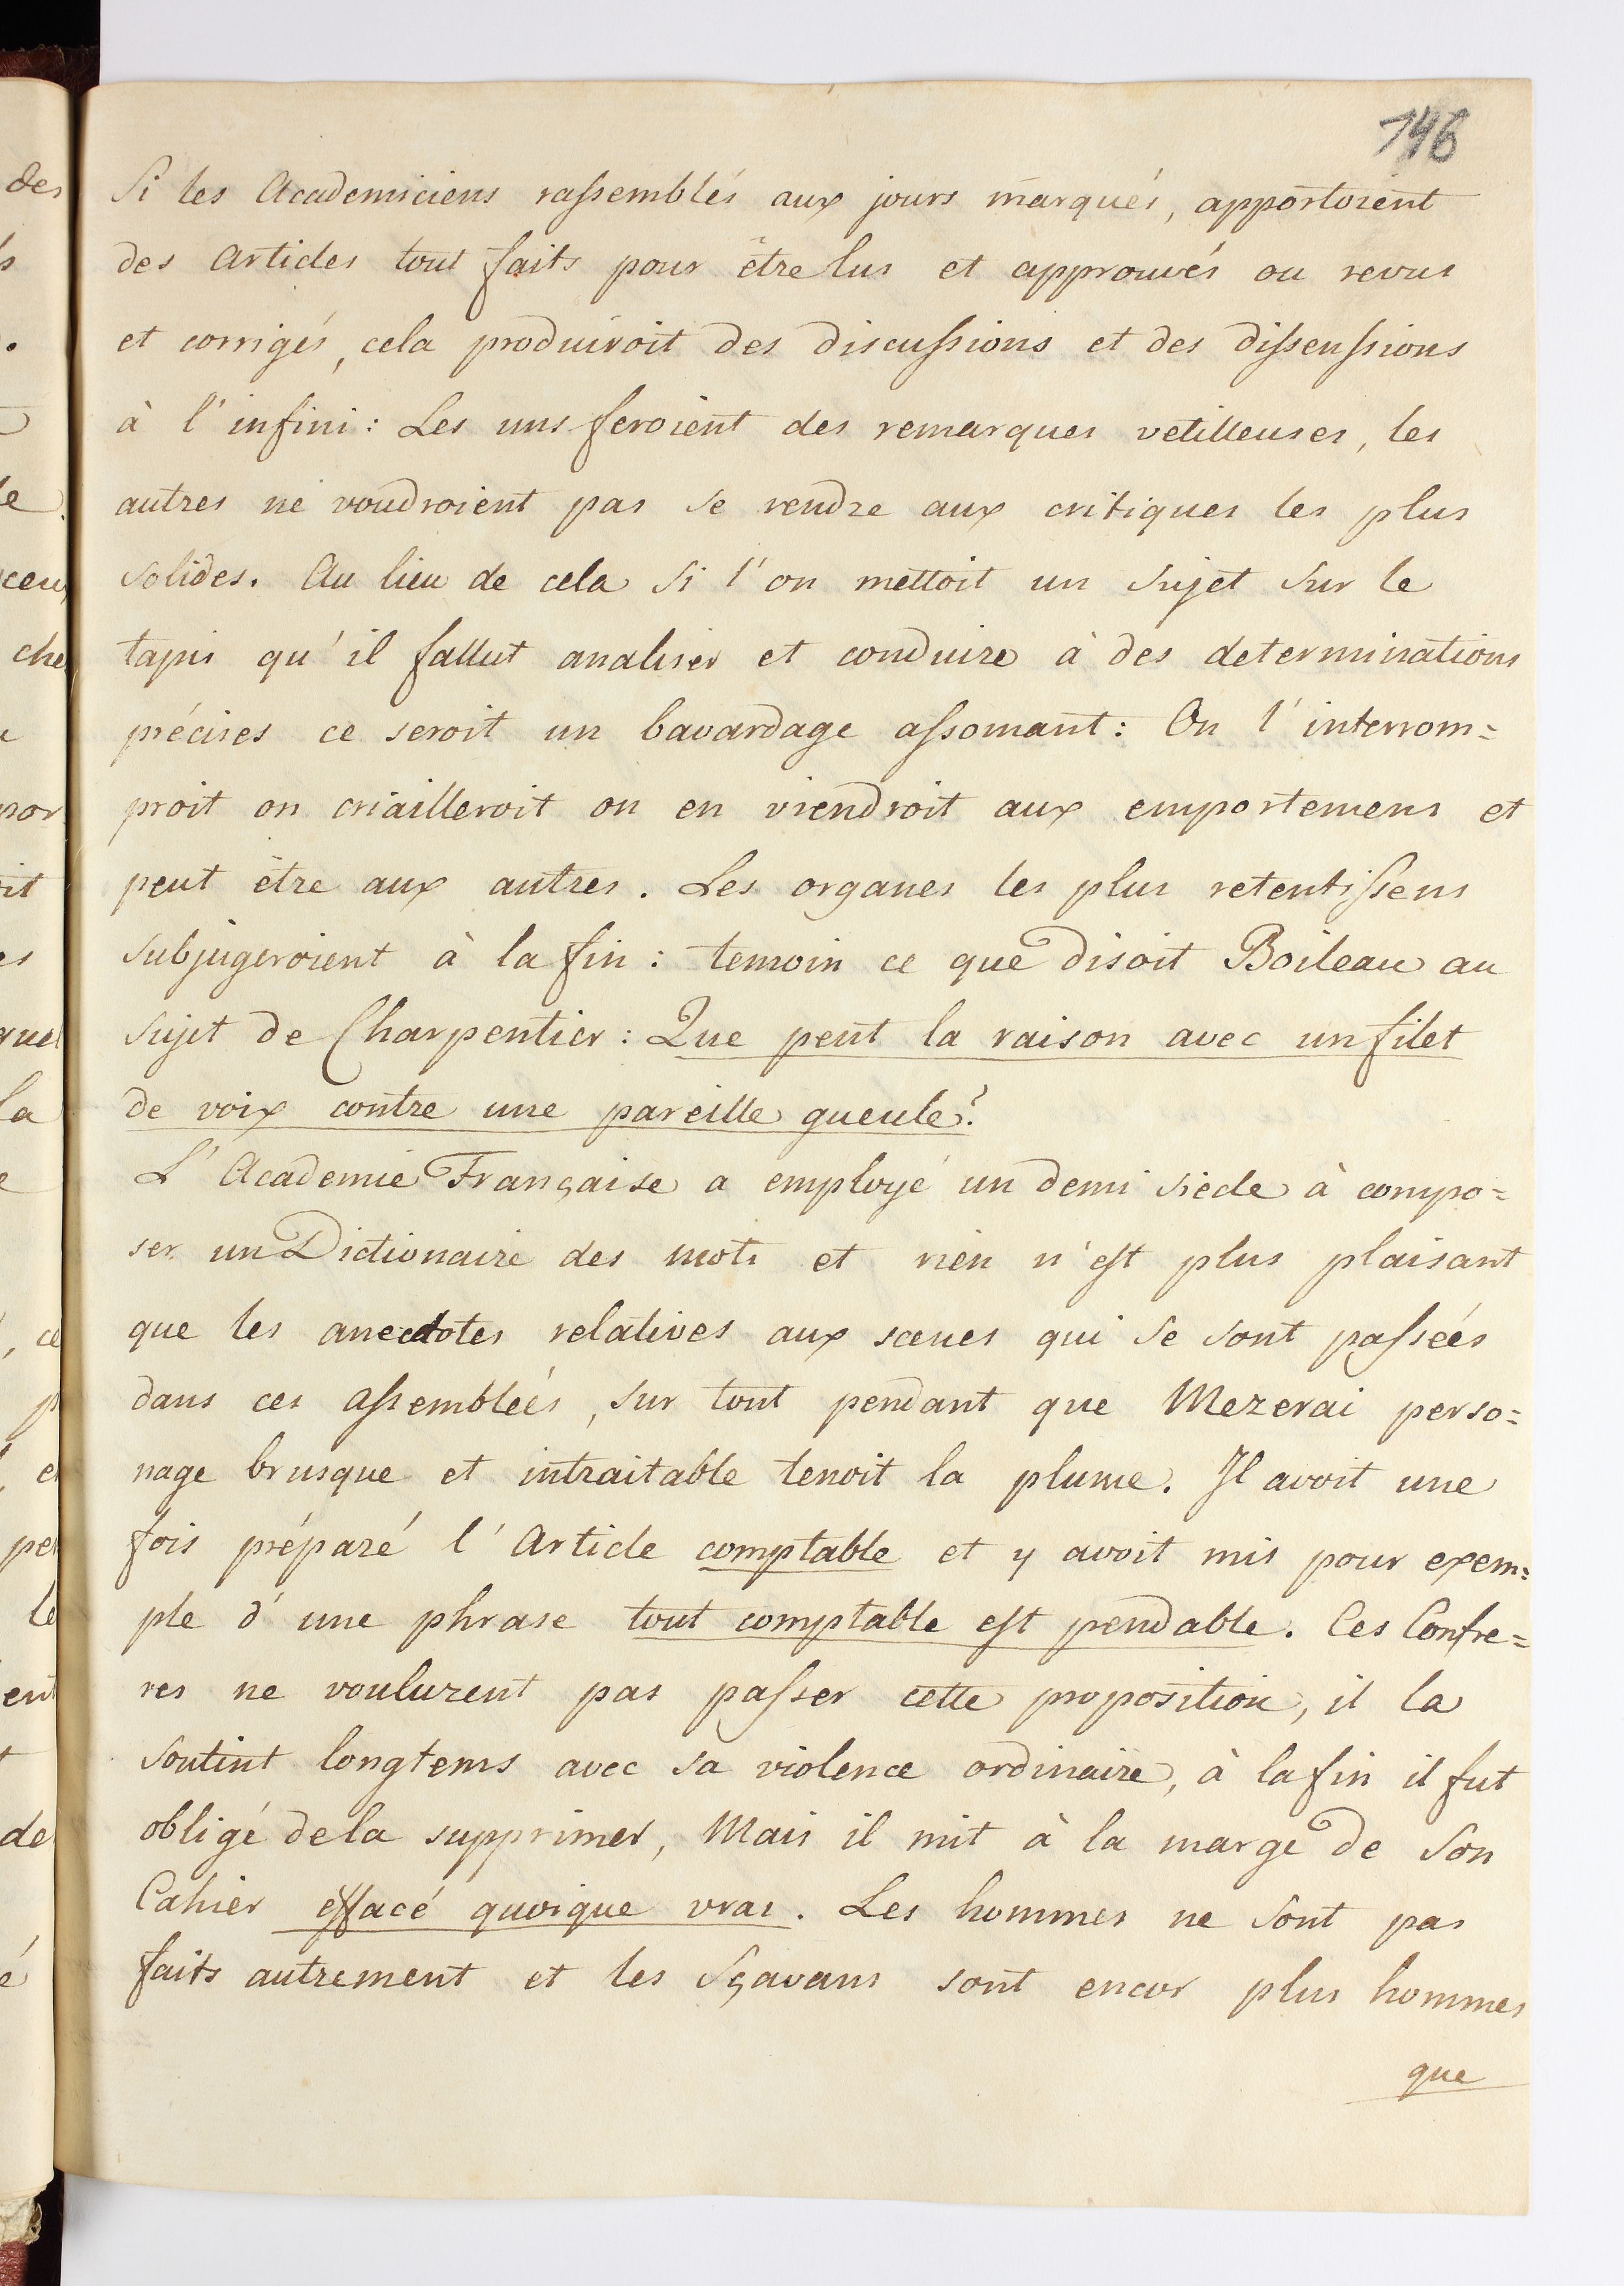 146
Si les Academiciens rassemblés aux jours marqués, apportoient
des Articles tout faits pour être lus et approuvés ou revus
et corrigés, cela produiroit des discussions et des dissenssions
à l'infini: Les uns feroient des remarques vetilleuses, les
autres ne voudroient pas se rendre aux critiques les plus
solides. Au lieu de cela si l'on mettoit un sujet sur le
tapis qu'il fallut analiser et conduire à des determinations
précises ce seroit un bavardage assomant: On l'interrom=
proit on criailleroit on en viendroit aux emportemens et
peut être aux autres. Les organes les plus retentissens
subjugeroient à la fin: temoin ce que disoit Boileau au
sujet de Charpentier: Que peut la raison avec un filet
de voix contre une pareille gueule?
L'Academie Française a employé un demi siecle à compo=
ser un Dictionaire des mots et rien n'est plus plaisant
que les anecdotes relatives aux scenes qui se sont passées
dans ces assemblées, sur tout pendant que Mezerai perso=
nage brusque et intraitable tenoit la plume. Il avoit une
fois préparé l'Article comptable et y avoit mis pour exem=
ple d'une phrase tout comptable est pendable. Ces Confre=
res ne voulurent pas passer cette proposition, il la
soutint longtems avec sa violence ordinaire, à la fin il fut
obligé de la supprimer, Mais il mit à la marge de son
Cahier effacé quoique vrai. Les hommes ne sont pas
faits autrement et les Sçavans sont encor plus hommes
que
des
ceu
che
nor
it
es
que
la
ce
pe
le
ent
de